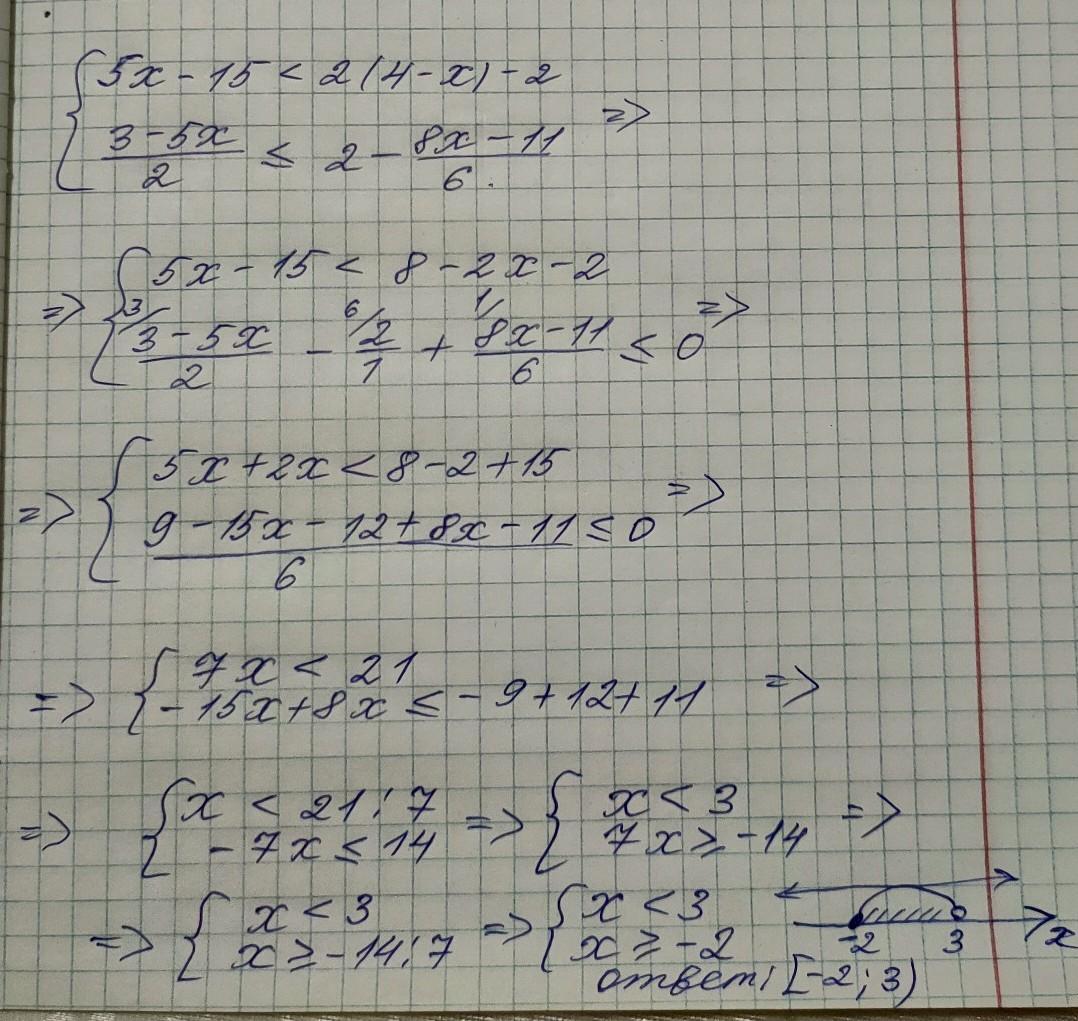 { 5x - 15 < 2(4 - x) - 2
(3 - 5x)/2 ≤ 2 - (8x - 11)/6 =>
=> { 5x - 15 < 8 - 2x - 2
3/ (3 - 5x)/2 - 6/ 2/1 + 1/ (8x - 11)/6 ≤ 0 =>
=> { 5x + 2x < 8 - 2 + 15
(9 - 15x - 12 + 8x - 11)/6 ≤ 0 =>
=> { 7x < 21
- 15x + 8x ≤ - 9 + 12 + 11 =>
=> { x < 21 : 7
- 7x ≤ 14 => { x < 3
7x ≥ -14 =>
=> { x < 3
x ≥ -14 : 7 => { x < 3
x ≥ -2
-2 3 x
ответ: [-2; 3)